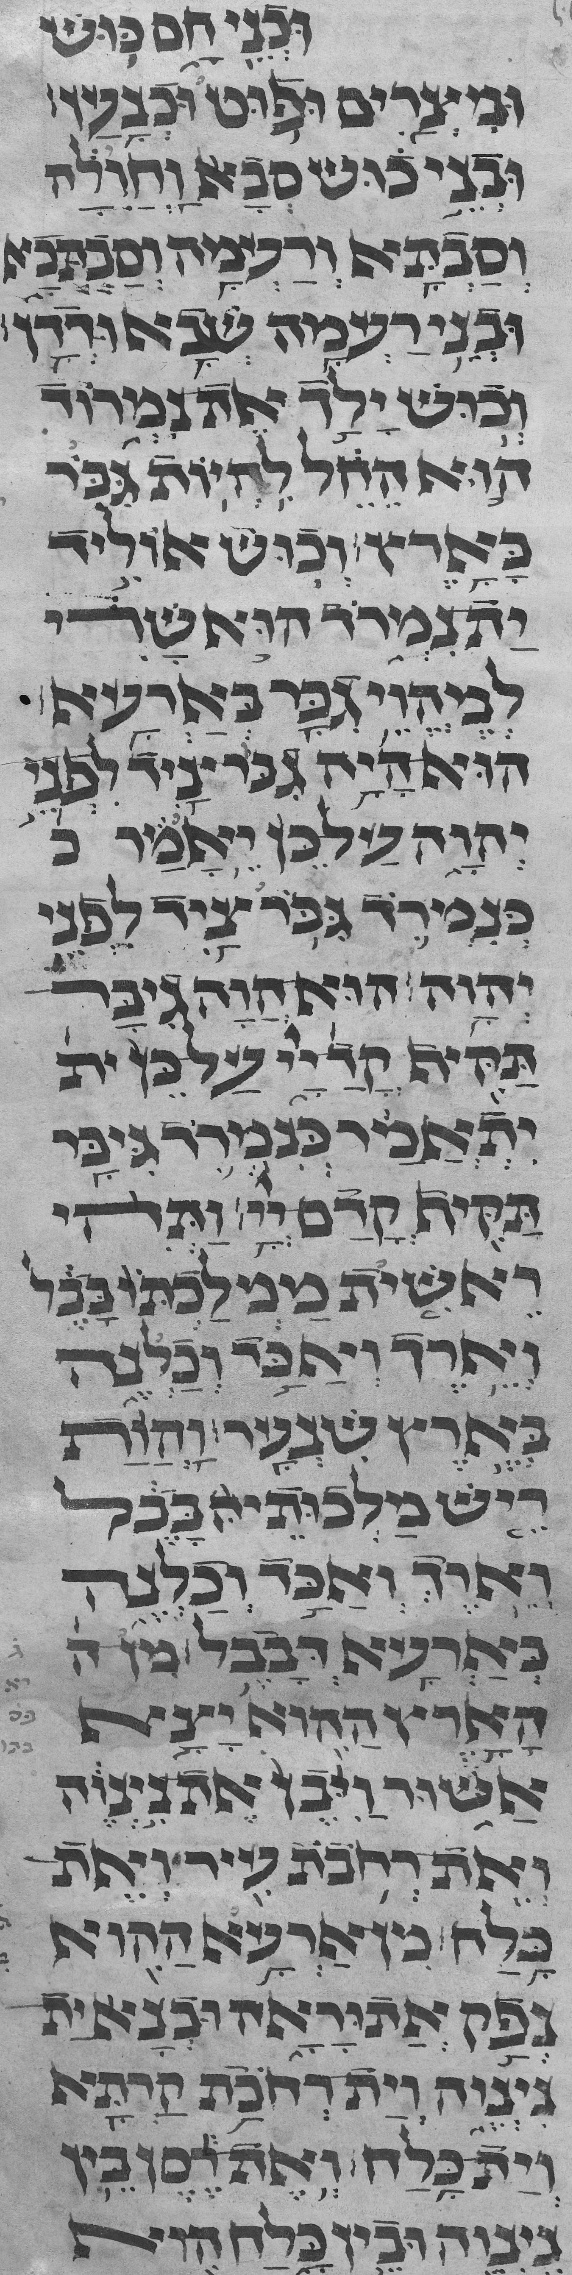 ובני חם כוש
ומצרים ופוט וכנען
ובני כוש סבא וחוילה
וסבתא ורעימה וסבתכא
ובני רעמה שבא ודדן
וכוש ילד את נמרוד
הוא החל להיות גבר
בארץ וכוש אוליד
ית נמרד הוא שרי
למיהוי גבר בארעא
הוא היה גבר ציד לפני
יהוה על כן יאמר כ
כנמרד גבר ציד לפני
יהוה הוא הוה גיבר
תקית קדם יי על כן ית
יתאמר כנמרד גיבר
תקית קדם יי ותהי
ראשית ממלכתו בבל
וארך ואכד וכלנה
בארץ שנער והות
ריש מלכותיה בבל
וארך ואכד וכלנה
בארעא דבבל מן ה
הארץ ההוא יצא
אשור ויבן את נינוה
ואת רחבת עיר ואת
כלח מן ארעא ההוא
נפק אתוראה ובנא ית
נינוה וית רחבת קרתא
וית כלח ואת רסן בין
נינוה ובין כלח הוא